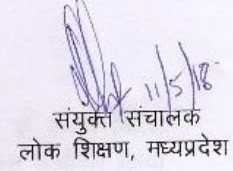 11/5/18
संयुक्त संचालक
लोक शिक्षण, मध्यप्रदेश